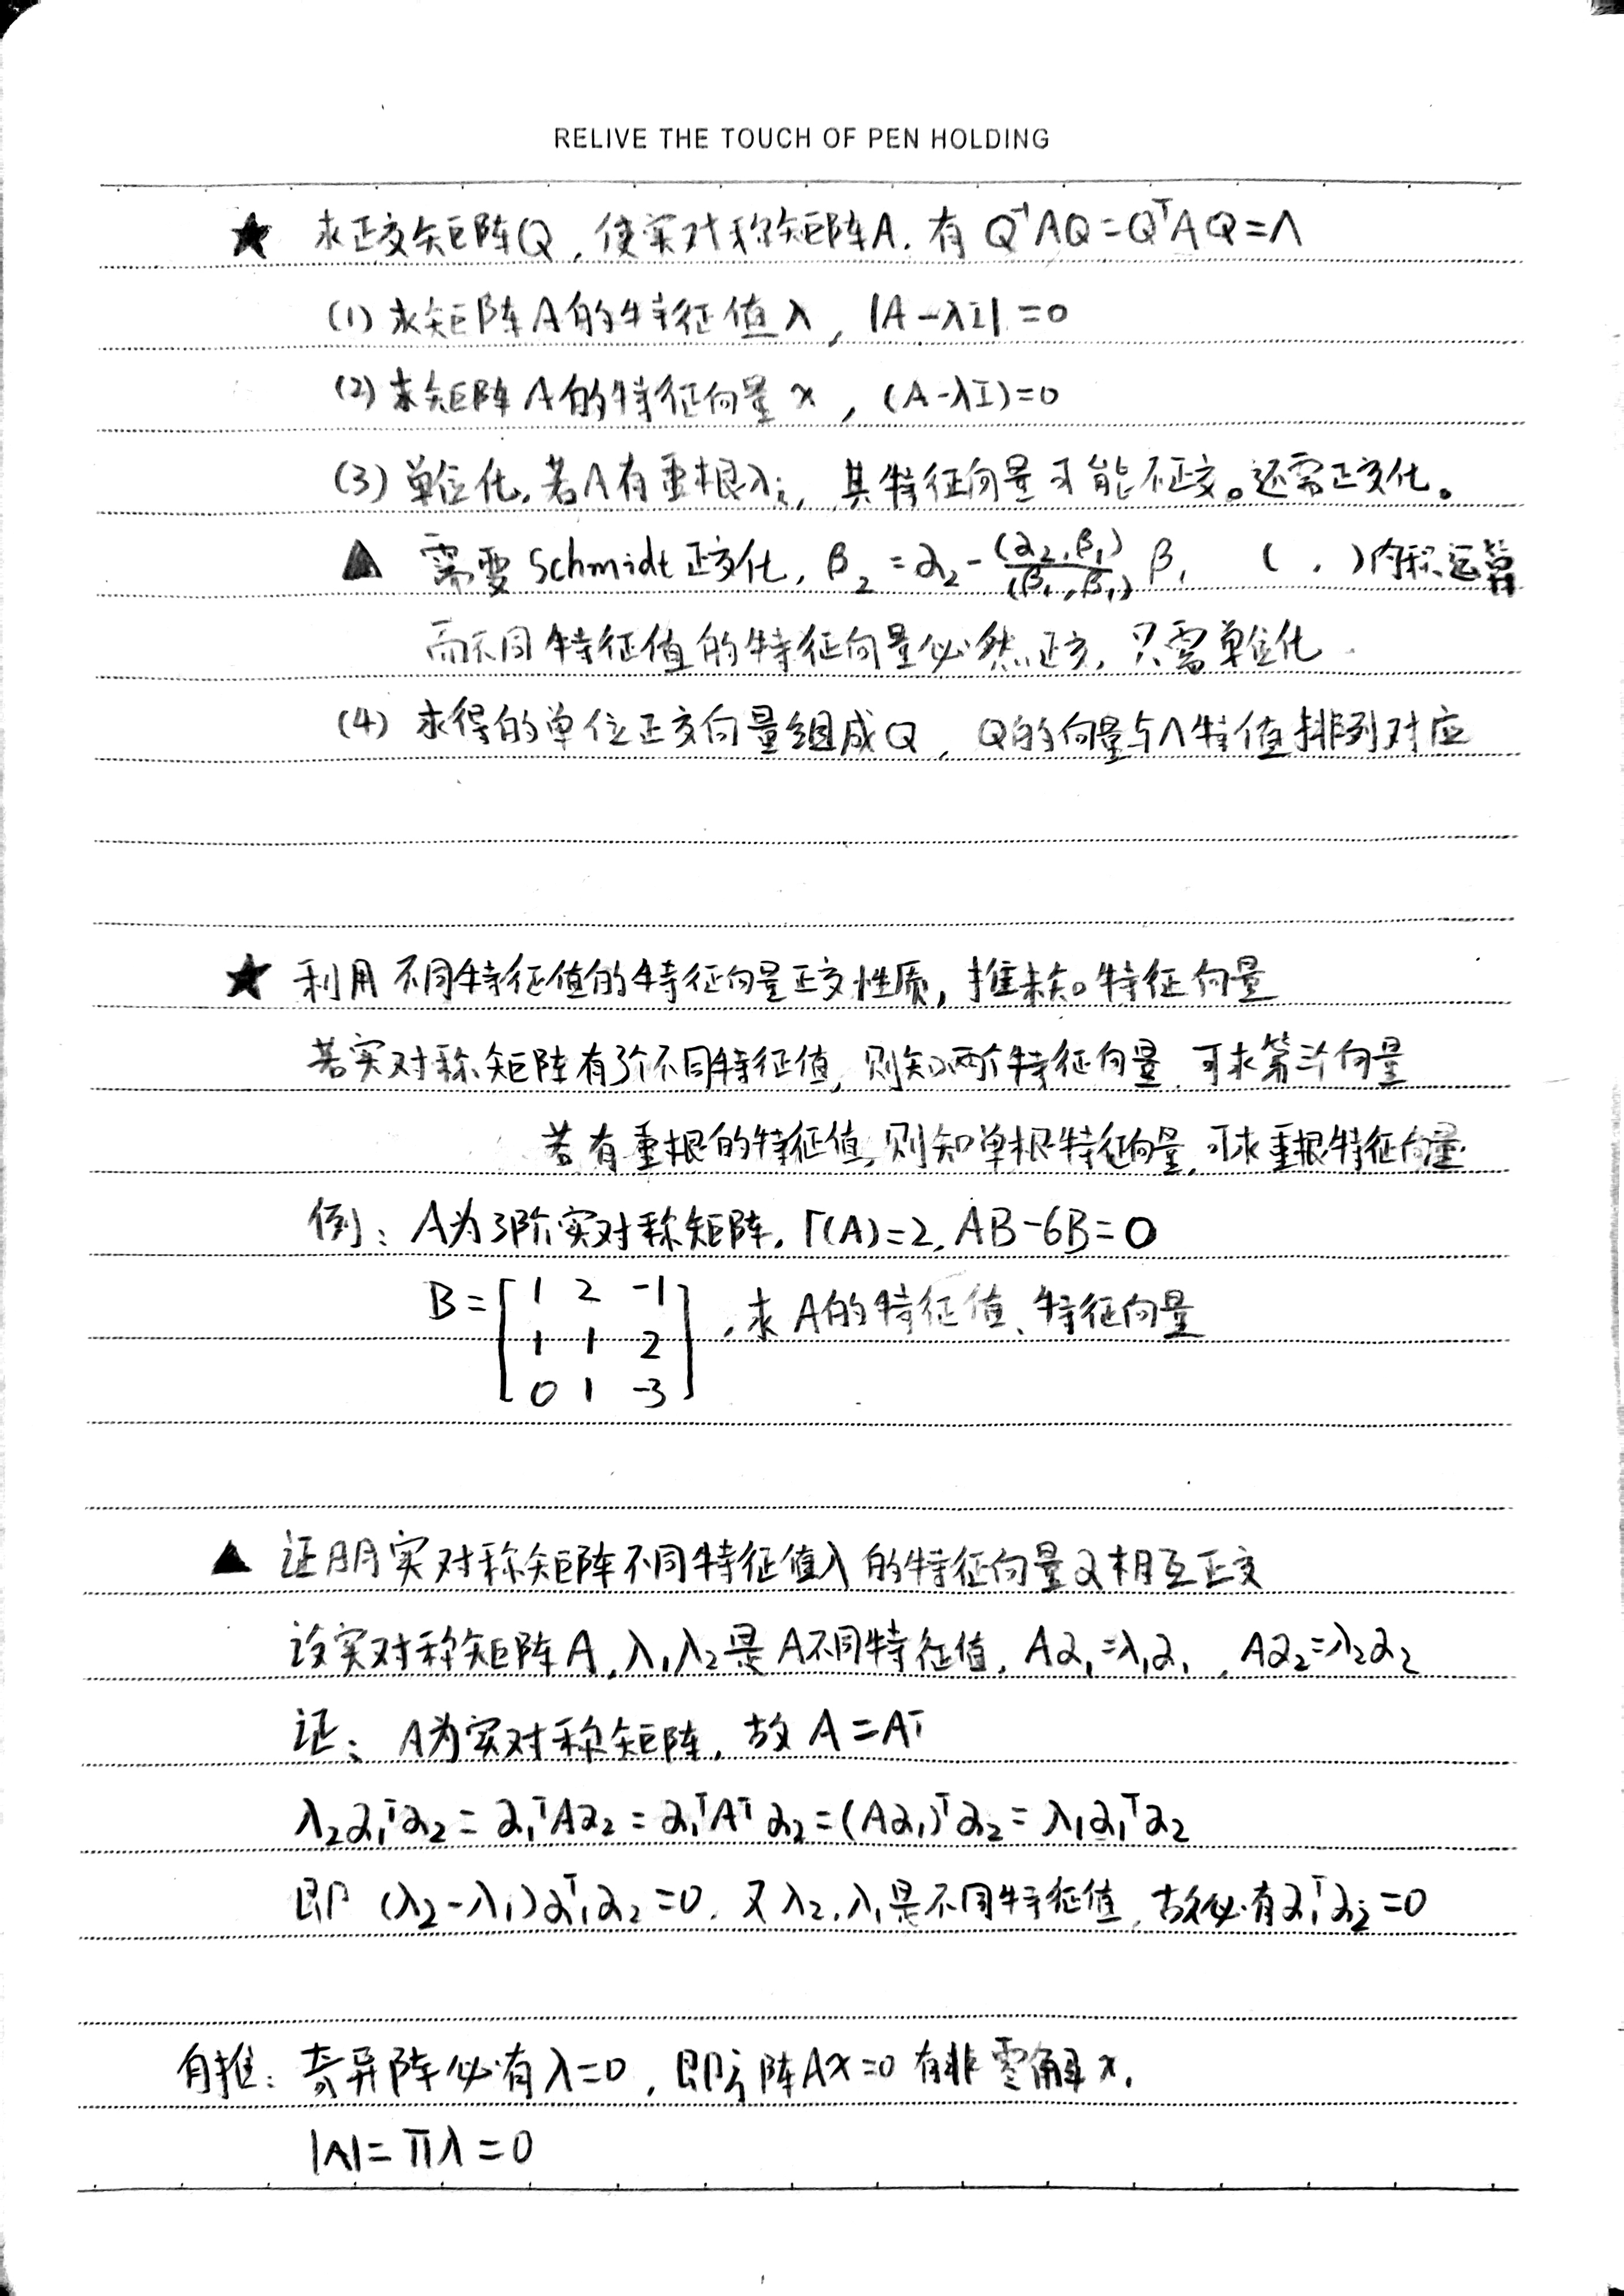 RELIVE THE TOUCH OF PEN HOLDING
★ 求正交矩阵Q,使实对称矩阵A,有 Q⁻¹AQ=QᵀAQ=Λ
(1) 求矩阵A的特征值λ,|A-λI|=0
(2) 求矩阵A的特征向量x,(A-λI)=0
(3) 单位化,若A有重根λᵢ,其特征向量可能不正交。还需正交化。
▲ 需要Schmidt正交化,β₂=α₂-(α₂,β₁)/(β₁,β₁) β₁ ( , )内积运算
而不同特征值的特征向量必然正交,只需单位化
(4) 求得的单位正交向量组成Q,Q的向量与Λ特值排列对应
★ 利用不同特征值的特征向量正交性质,推未知特征向量
若实对称矩阵有3个不同特征值,则知两个特征向量,可求第三个向量
若有重根的特征值,则知单根特征向量,可求重根特征向量
例:A为3阶实对称矩阵,r(A)=2,AB-6B=0
B=[1 2 -1
1 1 2 ],求A的特征值、特征向量
0 1 -3
▲ 证明实对称矩阵不同特征值λ的特征向量α相互正交
设实对称矩阵A,λ₁λ₂是A不同特征值,Aα₁=λ₁α₁,Aα₂=λ₂α₂
证:A为实对称矩阵,故A=Aᵀ
λ₂α₁ᵀα₂=α₁ᵀAα₂=α₁ᵀAᵀα₂=(Aα₁)ᵀα₂=λ₁α₁ᵀα₂
即 (λ₂-λ₁)α₁ᵀα₂=0,又λ₂,λ₁是不同特征值,故必有α₁ᵀα₂=0
有推:奇异阵必有λ=0,即方阵Ax=0有非零解x,
|A|=Πλ=0